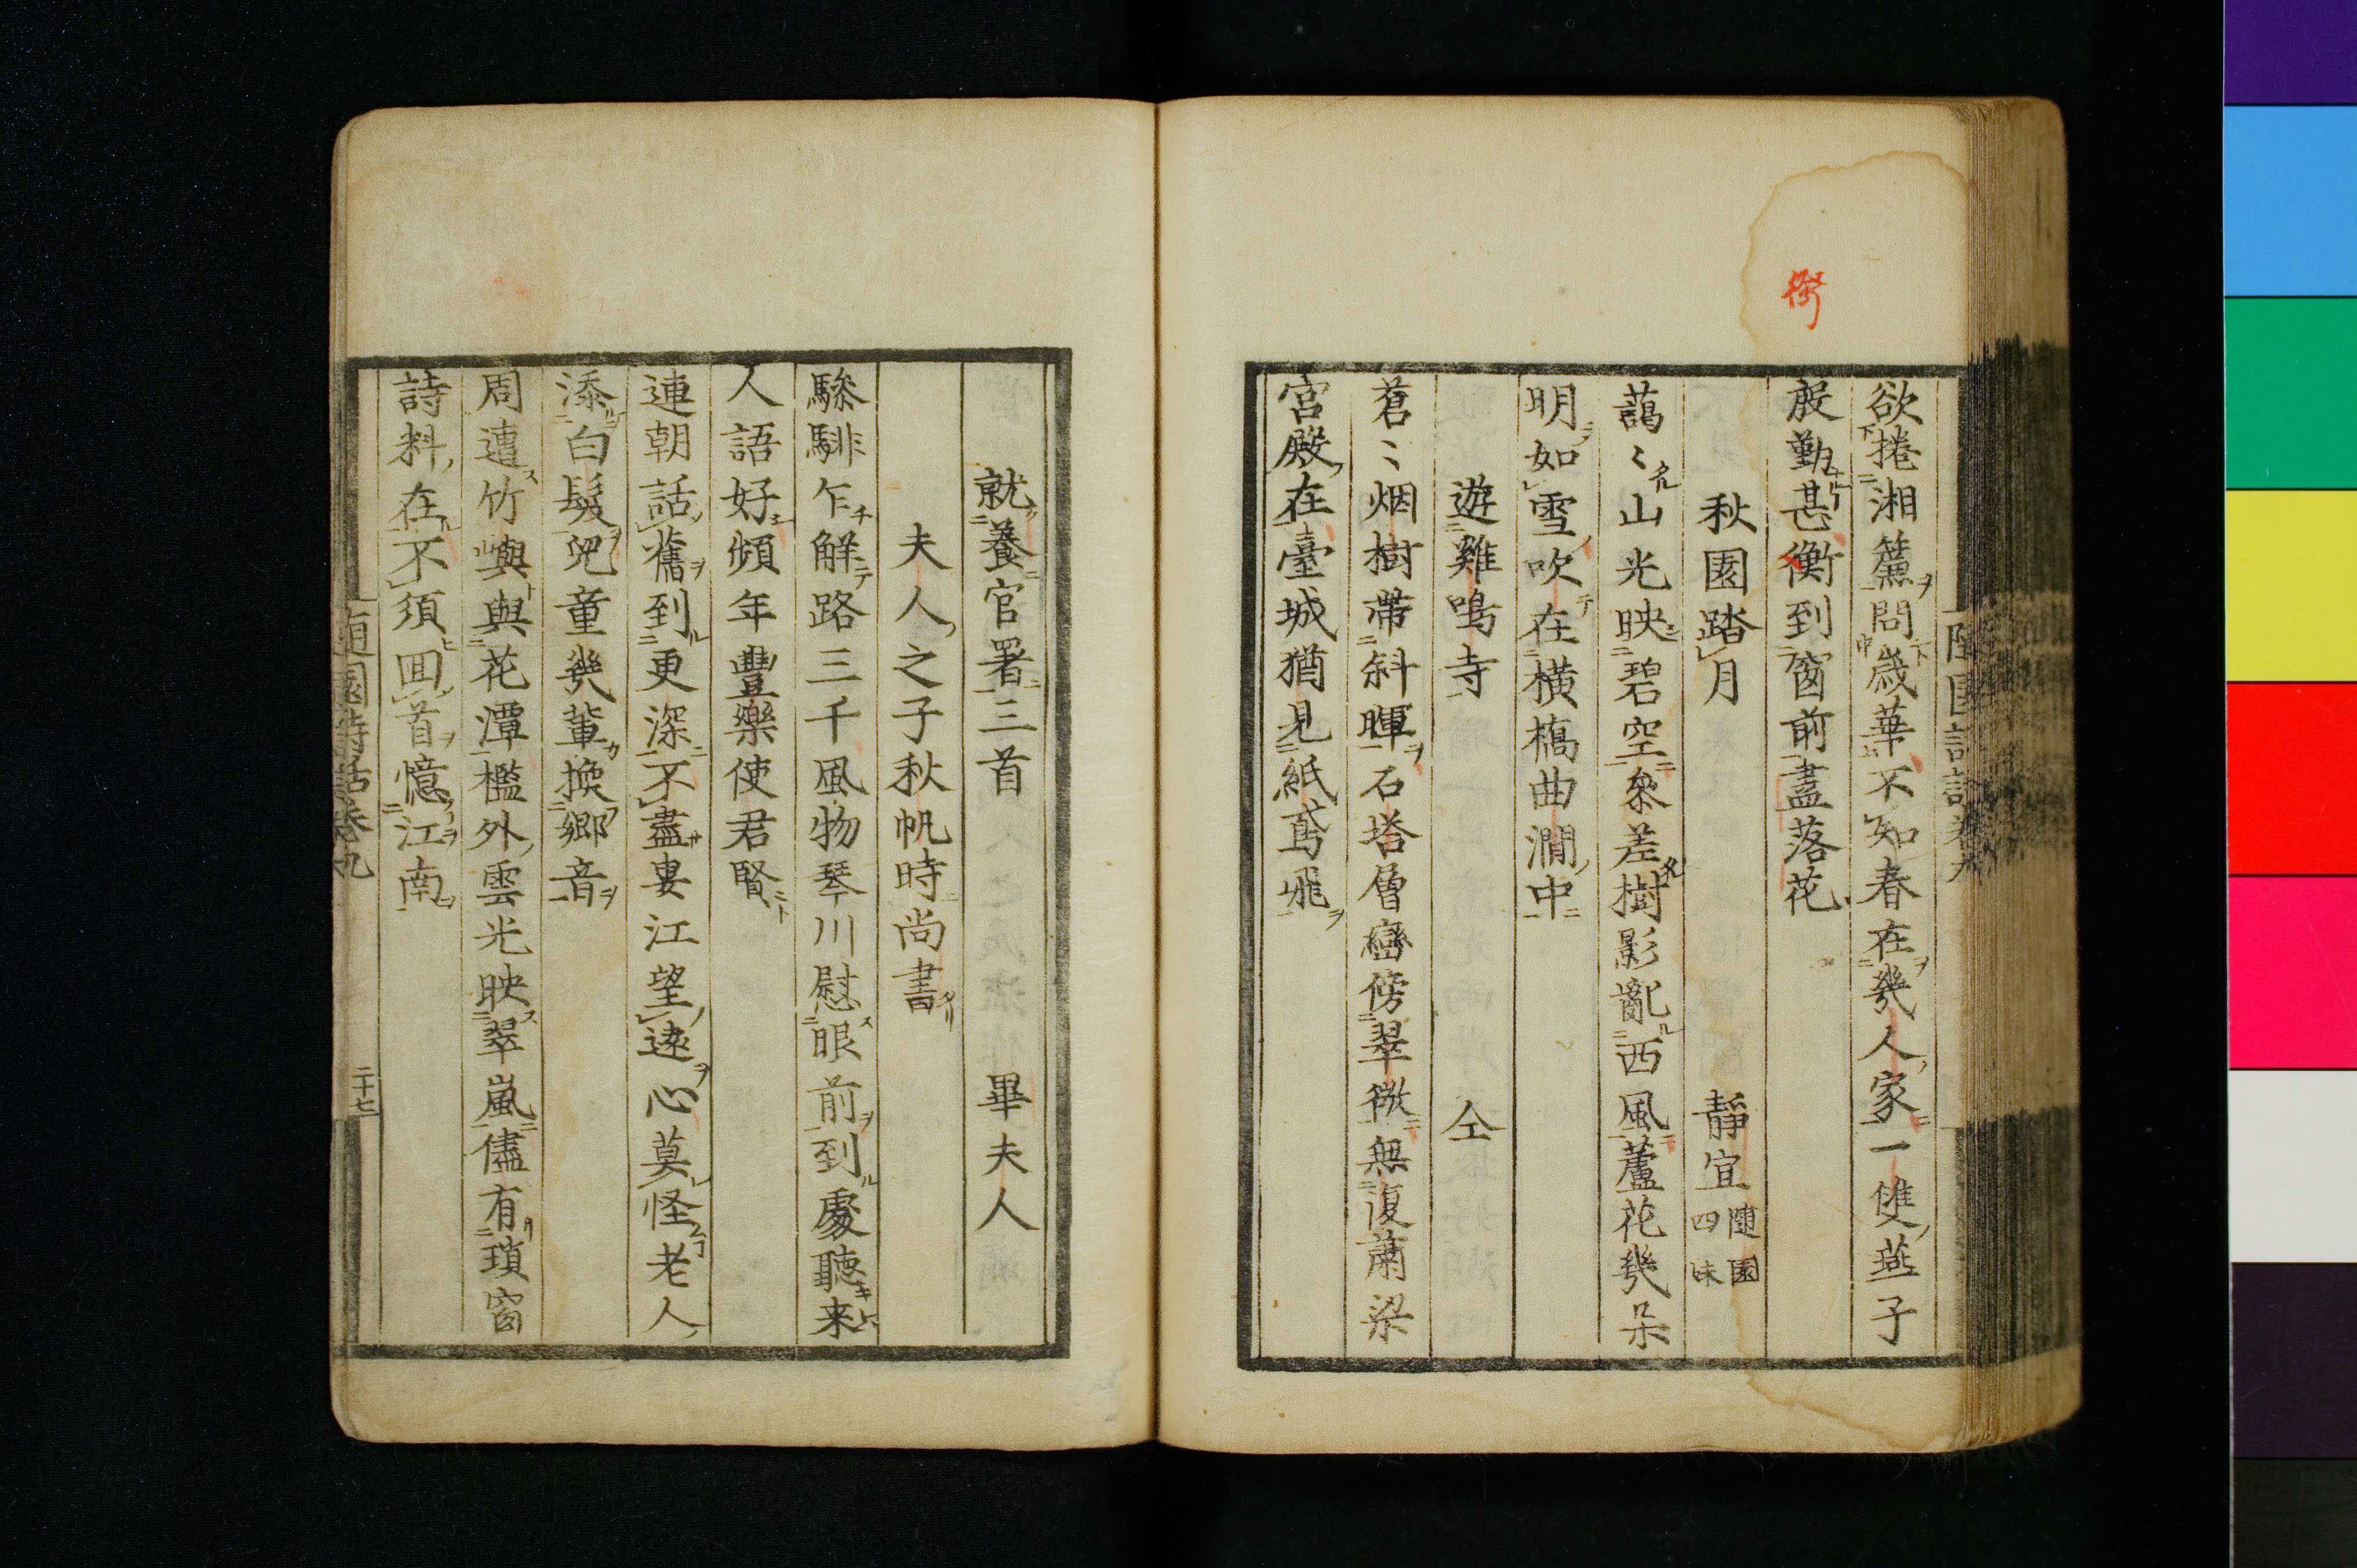 衘
欲捲湘簾問歲華不知春在幾人家一雙燕子
殷勤甚衡到窗前盡落花
秋園踏月 靜宜隨園四妹
藹〻山光映碧空參差樹影亂西風蘆花幾朵
明如雪吹在橫橋曲澗中
遊雞鳴寺 仝
蒼〻烟樹帶斜暉石塔層巒傍翠微無復蕭梁
宮殿在臺城猶見紙鳶飛
就養官署三首 畢夫人
夫人之子秋帆時尚書
驂騑乍解路三千風物琴川慰眼前到處聽来
人語好頻年豐樂使君賢
連朝話舊到更深不盡婁江望遠心莫怪老人
添白髮兒童幾輩換鄉音
周遭竹嶼與花潭檻外雲光映翠嵐儘有瑣窗
詩料在不須囬首憶江南
隨園詩話卷九
二十七